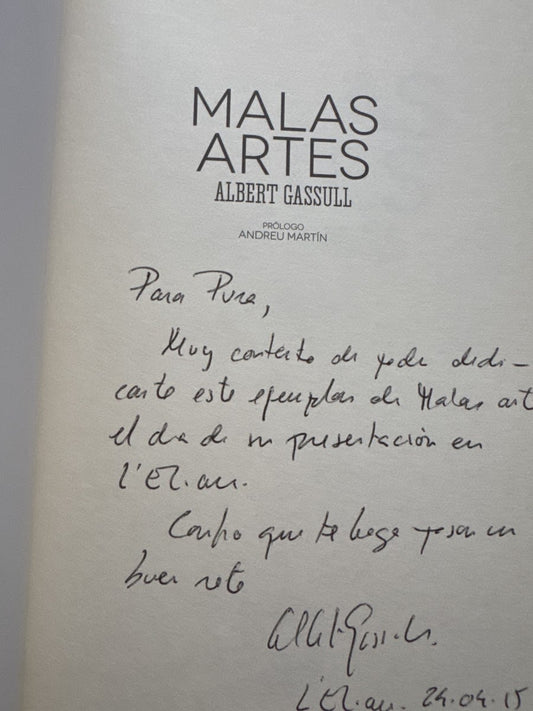 MALAS
ARTES
ALBERT GASSULL
PRÓLOGO
ANDREU MARTÍN
Para Pura,
Muy contento de poder dedi-
carte este ejemplar de Malas art
el día de su presentación en
L'Eliana.
Confío que te haga pasar un
buen rato
L'Eliana. 24.04.15